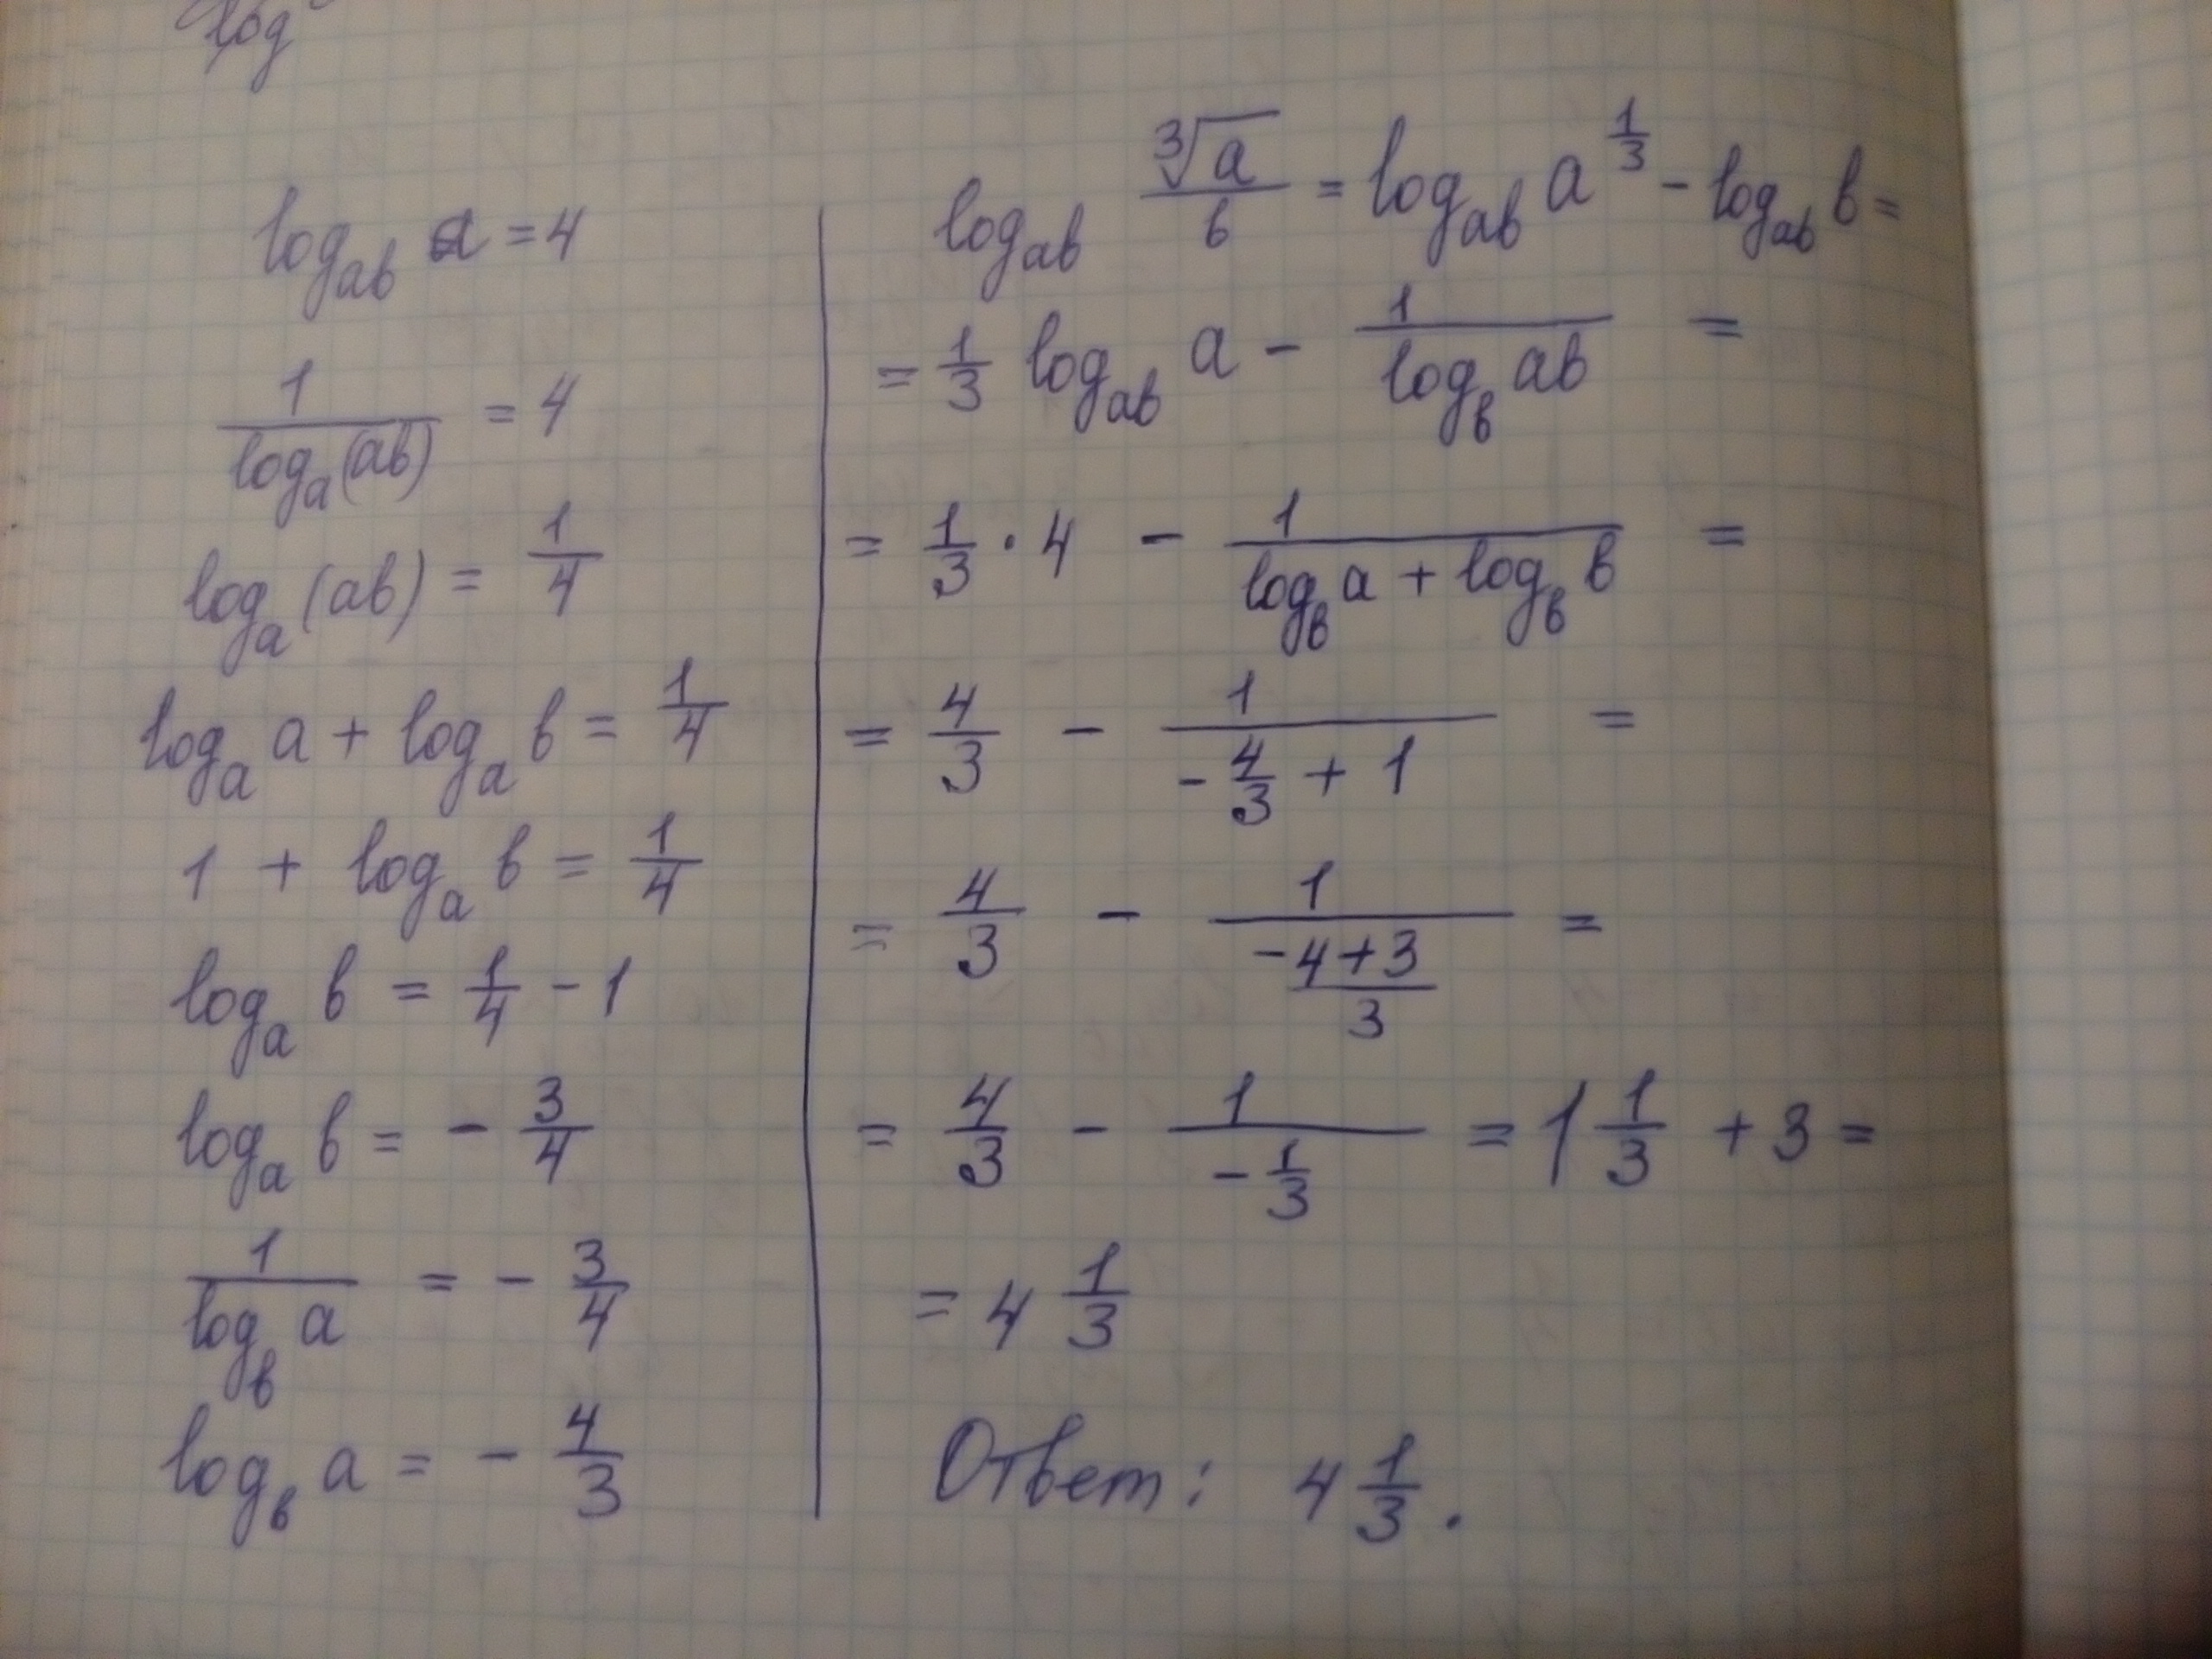 log
log_{ab} a = 4
\frac{1}{log_a (ab)} = 4
log_a (ab) = \frac{1}{4}
log_a a + log_a b = \frac{1}{4}
1 + log_a b = \frac{1}{4}
log_a b = \frac{1}{4} - 1
log_a b = - \frac{3}{4}
\frac{1}{log_b a} = - \frac{3}{4}
log_b a = - \frac{4}{3}
log_{ab} \frac{\sqrt[3]{a}}{b} = log_{ab} a^{\frac{1}{3}} - log_{ab} b =
= \frac{1}{3} log_{ab} a - \frac{1}{log_b ab} =
= \frac{1}{3} · 4 - \frac{1}{log_b a + log_b b} =
= \frac{4}{3} - \frac{1}{-\frac{4}{3} + 1} =
= \frac{4}{3} - \frac{1}{\frac{-4+3}{3}} =
= \frac{4}{3} - \frac{1}{-\frac{1}{3}} = 1 \frac{1}{3} + 3 =
= 4 \frac{1}{3}
Ответ: 4 \frac{1}{3}.